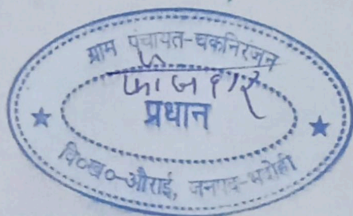 ग्राम पंचायत-चकनिरंजन
फौजदार
प्रधान
वि०ख०-औराई, जनपद-भदोही